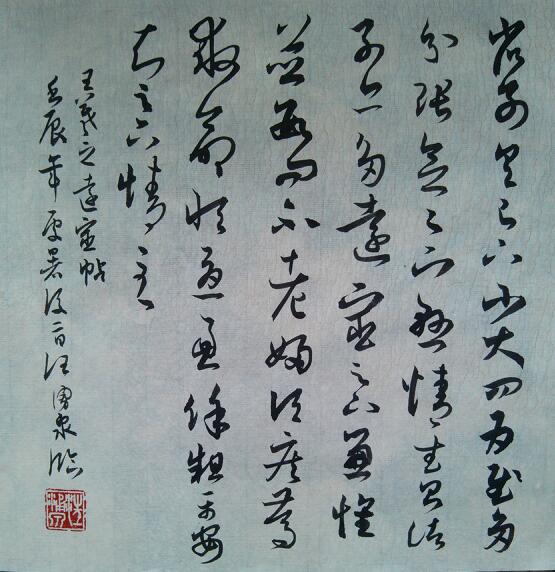 省別具足下小大問為慰多
分張念足下懸情武昌諸
子亦多遠宦足下兼懷
並數問不老婦頃疾篤
救命恒憂慮餘粗平安
知足下情至
王羲之遠宦帖
壬辰年處暑後二日汪泉臨